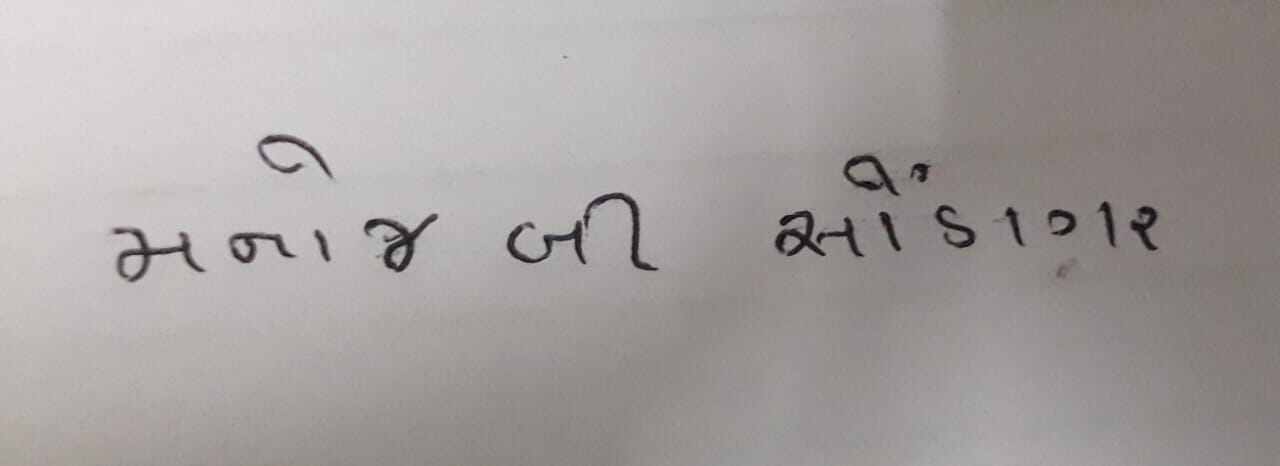 મનોજ બી સોંડાગર